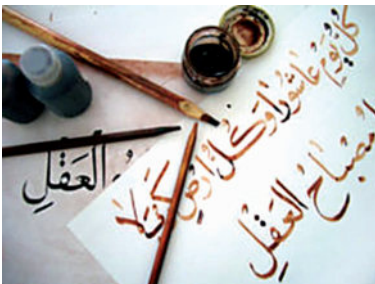 كل يوم عاشورا و كل ارض كربلا
مصباح العقل
العقل